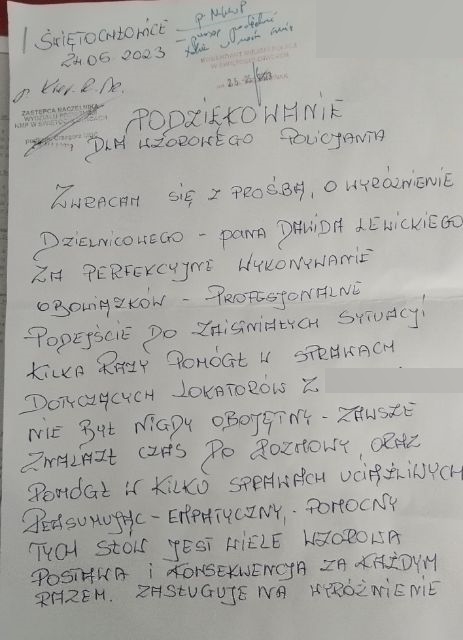 ŚWIĘTOCHŁOWICE
24.05.2023
p. NWWP
KOMENDANT MIEJSKI POLICJI
W ŚWIĘTOCHŁOWICACH
ZASTĘPCA NACZELNIKA
WYDZIAŁU
KMP W ŚWIĘTOCHŁOWICACH
PODZIĘKOWANIE
DLA WZOROWEGO POLICJANTA
ZWRACAM SIĘ Z PROŚBĄ, O WYRÓŻNIENIE
DZIELNICOWEGO - PANA DAWIDA LEWICKIEGO
ZA PERFEKCYJNE WYKONYWANIE
OBOWIĄZKÓW - PROFESJONALNE
PODEJŚCIE DO ZAISTNIAŁYCH SYTUACJI
KILKA RAZY POMÓGŁ W SPRAWACH
DOTYCZĄCYCH LOKATORÓW Z
NIE BYŁ NIGDY OBOJĘTNY - ZAWSZE
ZNALAZŁ CZAS DO ROZMOWY, ORAZ
POMÓGŁ W KILKU SPRAWACH UCIĄŻLIWYCH
REASUMUJĄC - EMPATYCZNY, POMOCNY
TYCH SŁÓW JEST WIELE WZOROWA
POSTAWA I KONSEKWENCJA ZA KAŻDYM
RAZEM. ZASŁUGUJE NA WYRÓŻNIENIE